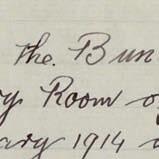 the. Bun
y Room o
ary 1914